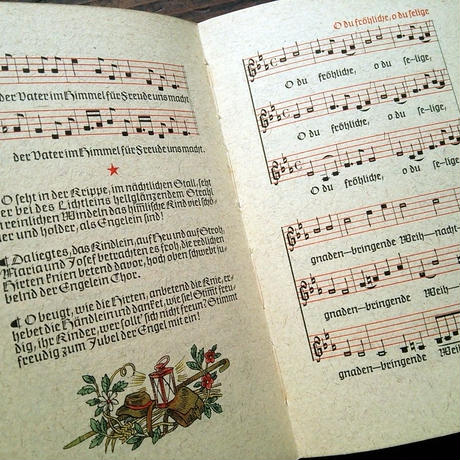 der Vater im Himmel für Freude uns macht
der Vater im Himmel für Freude uns macht.
O seht in der Krippe, im nächtlichen Stall, seht
hier bei des Lichtleins hellglänzendem Strahl
in reinlichen Windeln das himmlische Kind viel schö-
ner und holder, als Engelein sind!
Da liegt es, das Kindlein, auf Heu und auf Stroh,
Maria und Josef betrachten es froh, die redlichen
Hirten knien betend davor, hoch oben schwebt ju-
belnd der Engelein Chor.
O beugt, wie die Hirten, anbetend die Knie, er-
hebet die Händlein und danket, wie sie! Stimmt freu-
dig, ihr Kinder, wer sollt' sich nicht freun? Stimmt
freudig zum Jubel der Engel mit ein!
O du fröhliche, o du selige
O du fröhliche, o du se-lige,
O du fröhliche, o du se-lige,
O du fröhliche, o du se-lige,
gnaden-bringende Weih-nacht-
gnaden-bringende Weih-
gnaden-bringende Weih-